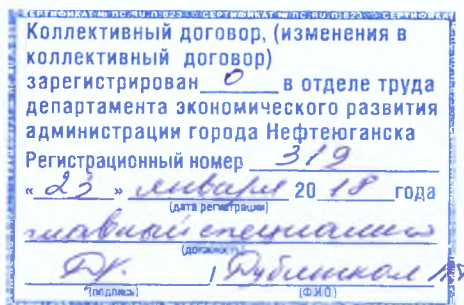 СЕРТИФИКАТ № ПС.RU.П.823 СЕРТИФИКАТ № ПС.RU.П.823 СЕРТИФИКАТ
Коллективный договор, (изменения в
коллективный договор)
зарегистрирован о в отделе труда
департамента экономического развития
администрации города Нефтеюганска
Регистрационный номер 319
« 23 » января 20 18 года
(дата регистрации)
главный специалист
(должность)
/
(подпись) (Ф.И.О.)